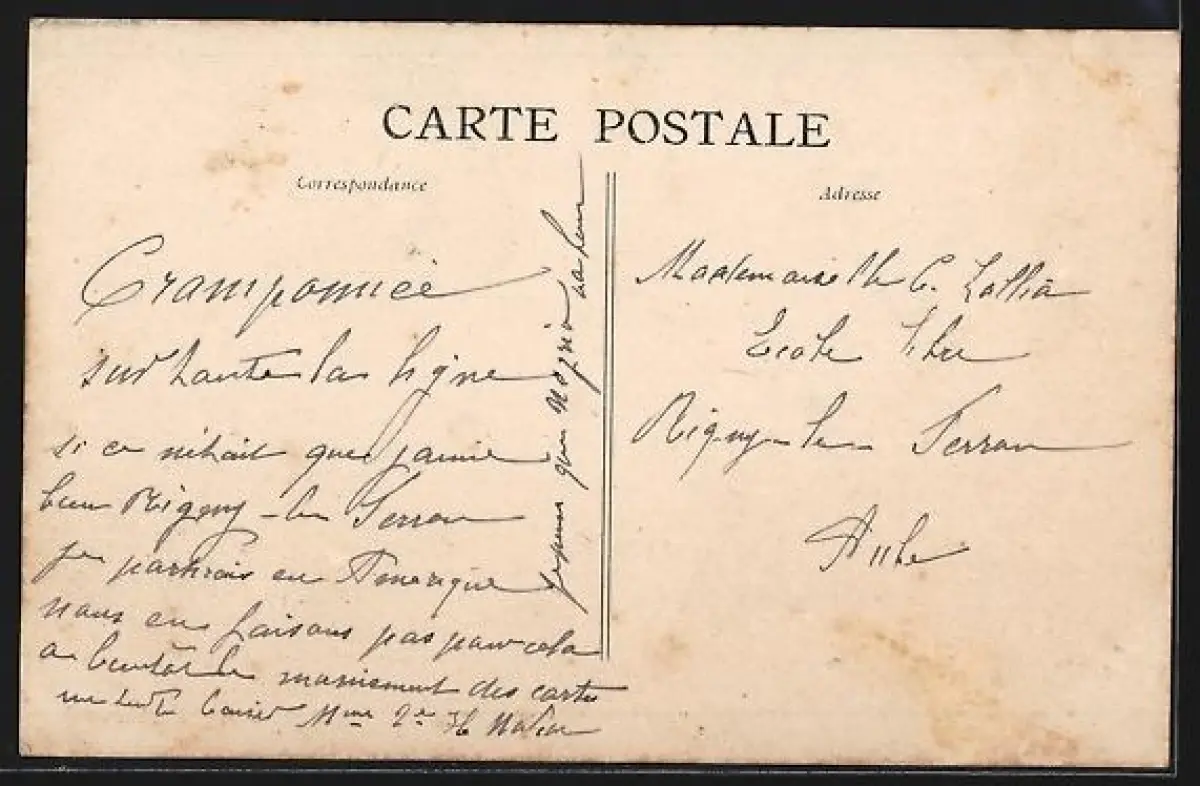 CARTE POSTALE
Correspondance
Adresse
Cramponnée
sur toute la ligne
si ce n'était que j'aime
bien Rigny-le-Ferron
je partirais en Amérique
nous en faisons pas pour cela
a bientôt le maniement des cartes
Mme
j'espère que
Mademoiselle C.
Ecole libre
Rigny-le-Ferron
Aube